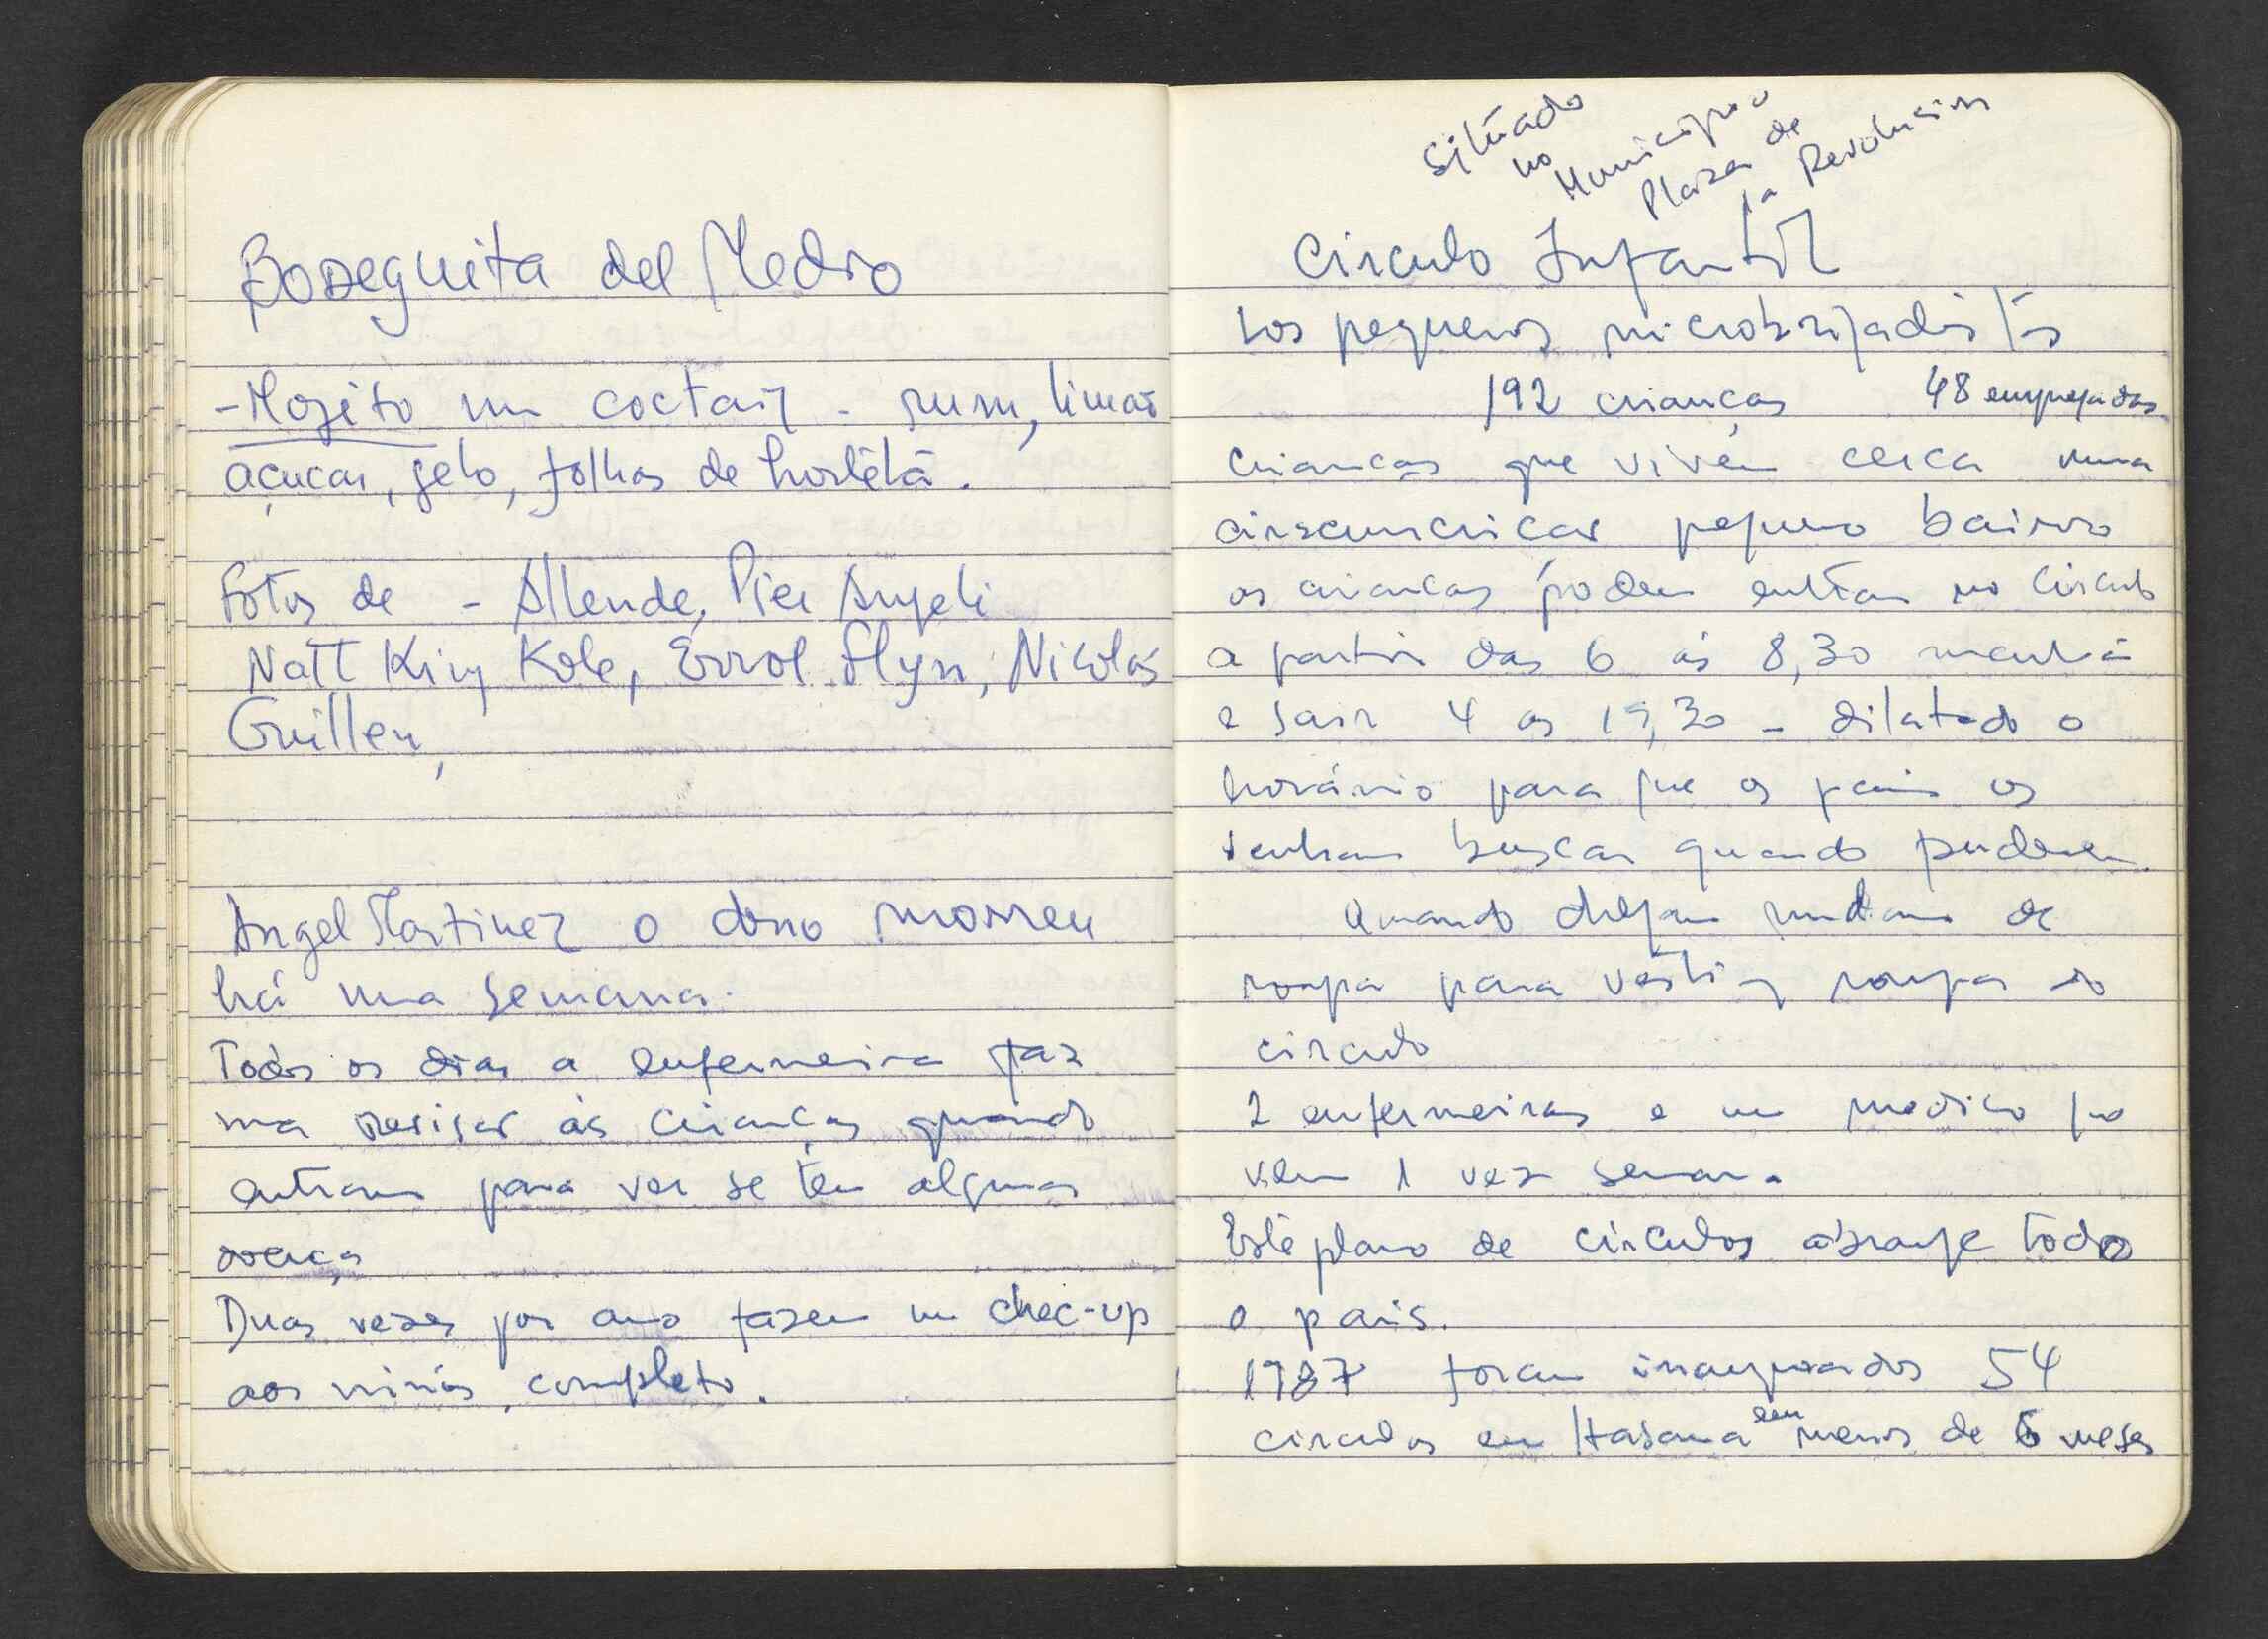 Bodeguita del Medio
- Mojito um coctail - rum, limão
açucar, gelo, folhas de hortêlã.
Fotos de - Allende, Pier Angeli
Natt King Kole, Errol Flyn, Nicolás
Guillen,
Angel Martinez o dono morreu
há uma semana.
Todos os dias a enfermeira faz
uma revisão às crianças quando
entram para ver se têm alguma
doença
Duas vezes por ano fazem um chec-up
aos niños, completo.
Situado
no
Municipio
Plaza de
la Revolucion
Circulo Infantil
Los pequenos microbrijadistas
192 crianças 48 empregadas
Crianças que vivem cerca numa
circunscricão pequeno bairro
as crianças podem entrar no Circulo
a partir das 6 às 8,30 manhã
e sair 4 as 19,30 - dilatado o
horário para que os pais os
venham buscar quando puderem.
Quando chegam mudam de
roupa para vestir roupa do
circulo
2 enfermeiras e um medico que
vem 1 vez semana.
Este plano de circulos abrange todo
o pais.
1987 foram inaugurados 54
circulos em Habana em menos de 6 meses